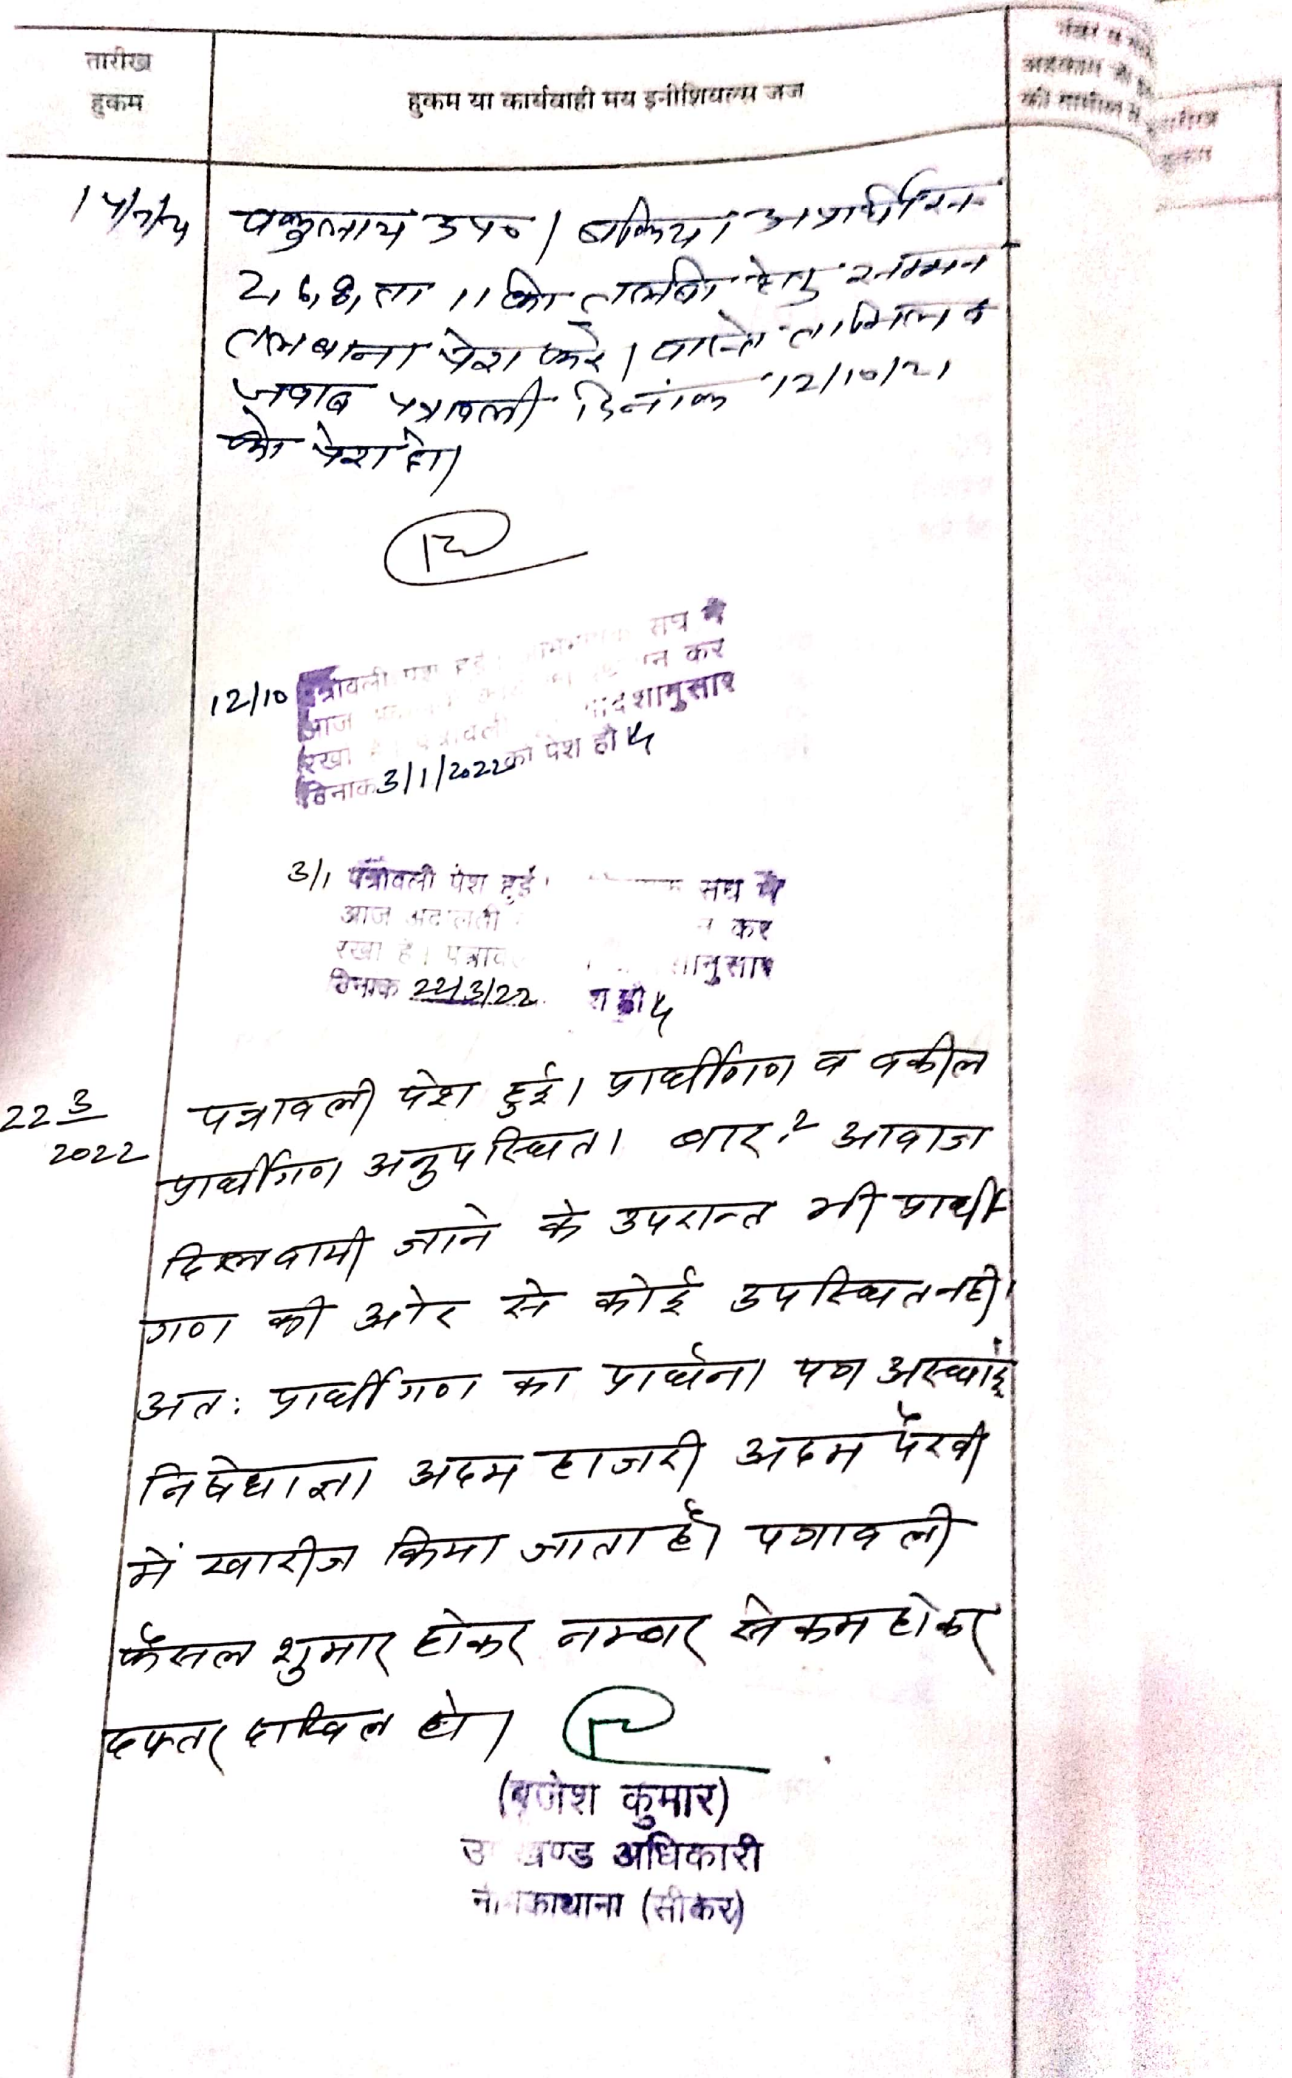 तारीख
हुकम
हुकम या कार्यवाही मय इनीशियल्स जज
नंबर व
अहकाम
की तामील में
तारीख
हुकम
उप० । बकिया
2, 6, 8, ता 11 की तलबी हेतु सम्मन
तलबाना पेश करे । वास्ते तामिल व
जवाब पत्रावली दिनांक 12/10/21
को पेश हो।
12/10 पत्रावली पेश हुई। संघ ने
आज कर
रखा है। पत्रावली आदेशानुसार
दिनांक 3/1/2022 को पेश हो
3/1 पत्रावली पेश हुई। संघ ने
आज अदालती कर
रखा है। पत्राव नुसार
दिनांक 22/3/22 श हो
22 3/2022
पत्रावली पेश हुई। प्रार्थीगण व वकील
प्रार्थीगण अनुपस्थित। बार-2 आवाज
दिलवायी जाने के उपरान्त भी प्रार्थी
गण की ओर से कोई उपस्थित नही।
अतः प्रार्थीगण का प्रार्थना पत्र अस्थाई
निषेधाज्ञा अदम हाजरी अदम पैरवी
में खारीज किया जाता है। पत्रावली
फैसल शुमार होकर नम्बर से कम होकर
दफ्तर दाखिल हो।
(बृजेश कुमार)
उ खण्ड अधिकारी
नीमकाथाना (सीकर)